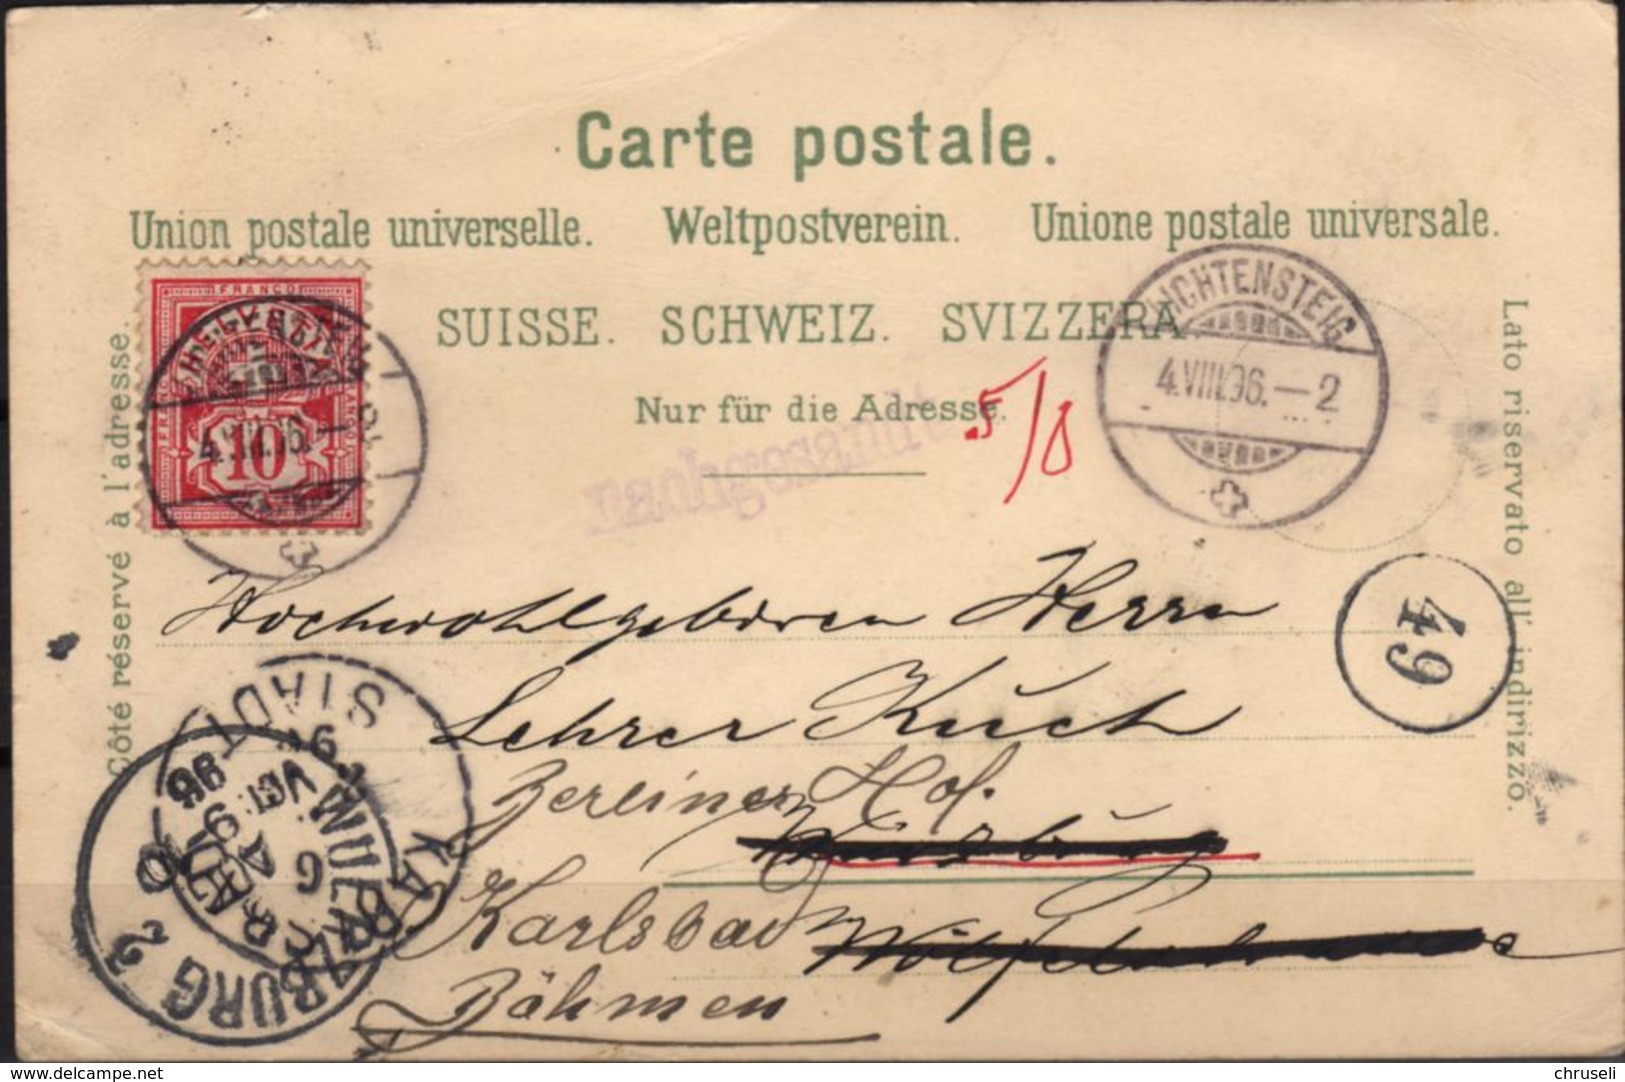 Carte postale.
Union postale universelle. Weltpostverein. Unione postale universale.
SUISSE. SCHWEIZ. SVIZZERA.
Nur für die Adresse.
Côté réservé à l'adresse.
Lato riservato all'indirizzo.
FRANCO
10
4.VIII.96.–2
LICHTENSTEIG
4.VIII.96.–2
nachgesandt
5/8
49
Hochwohlgeboren Herrn
Lehrer Kuch
Berliner Hof.
Würzburg
Karlsbad
Böhmen
KARLSBAD STADT
WÜRZBURG 2
delcampe.net
chruseli